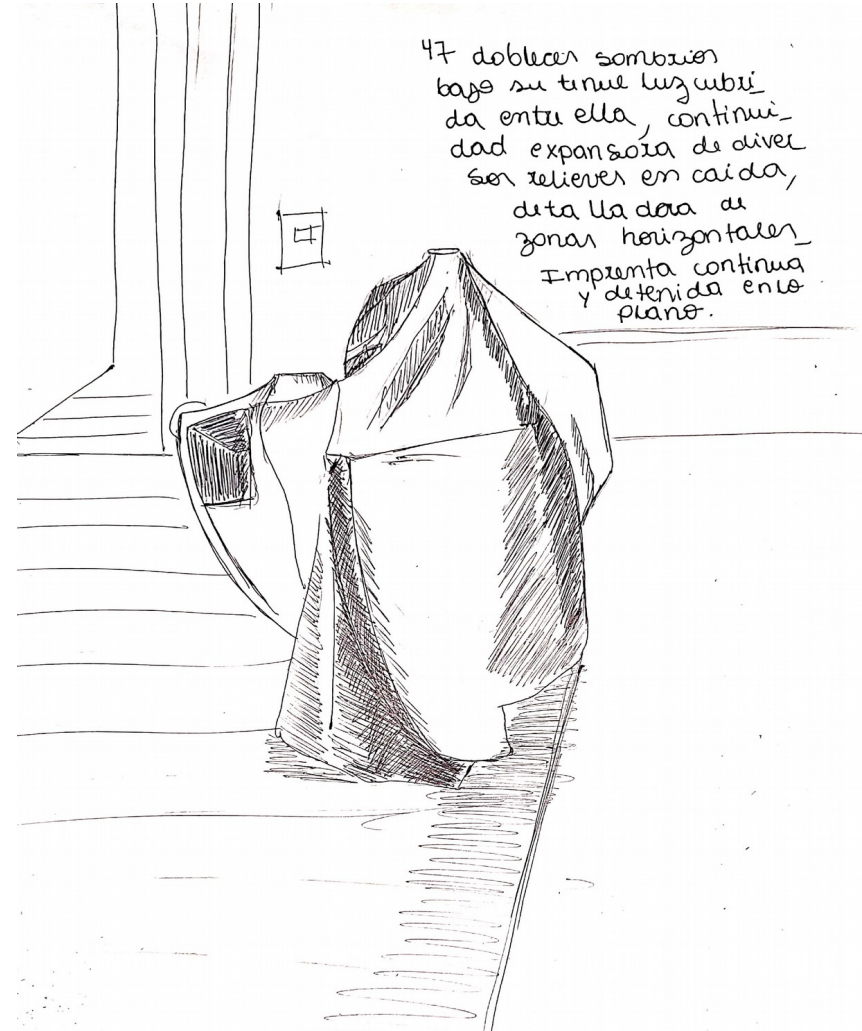 47 dobleces sombrios
bajo su tenue luz cubri_
da entre ella, continui_
dad expansora de diver
sos relieves en caída,
detalladora de
zonas horizontales_
Imprenta continua
y detenida en lo
plano.